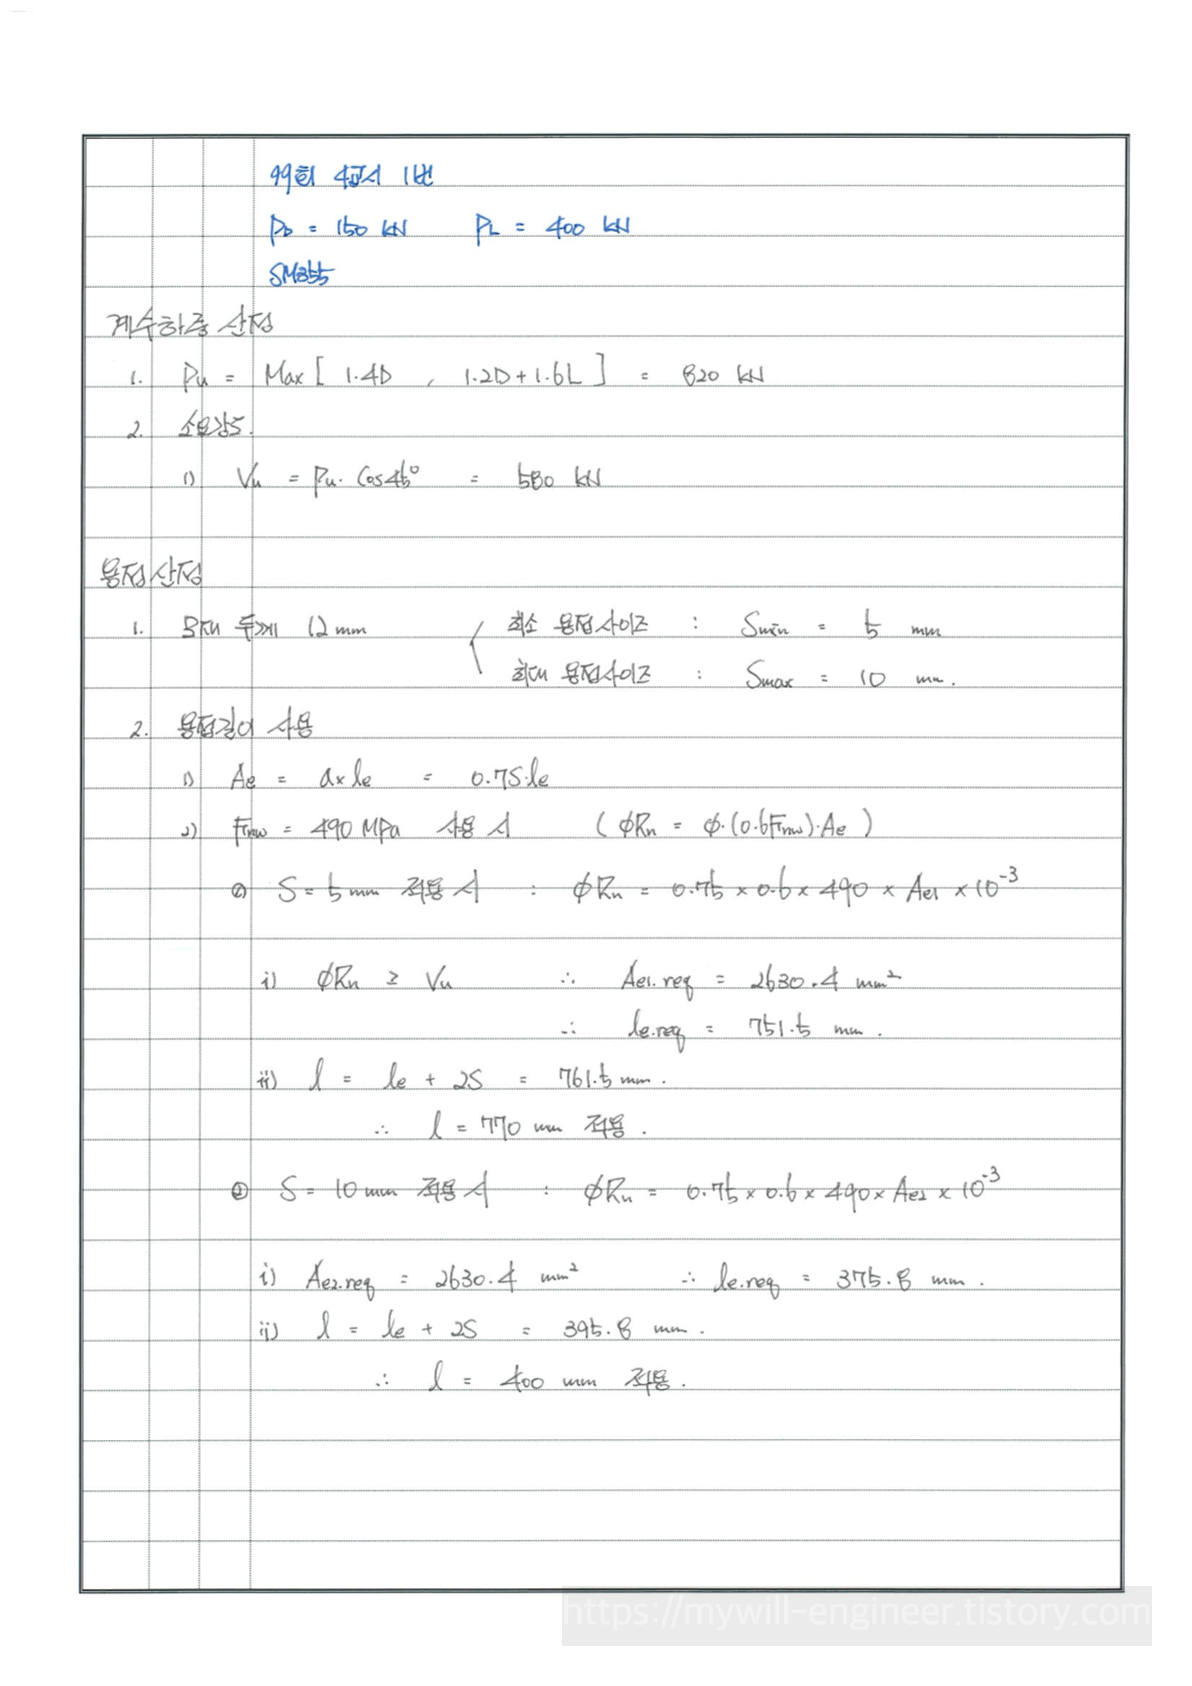 99회 4교시 1번
PD = 150 kN PL = 400 kN
SM355
계수하중 산정
1. Pu = Max [ 1.4D , 1.2D + 1.6L ] = 820 kN
2. 소요강도.
1) Vu = Pu· Cos45° = 580 kN
용접 산정
1. 모재 두께 12mm 최소 용접사이즈 : Smin = 5 mm
최대 용접사이즈 : Smax = 10 mm.
2. 용접길이 사용
1) Ae = a × le = 0.7S·le
2) Fnw = 490 MPa 사용 시 ( ϕRn = ϕ·(0.6Fnw)·Ae )
① S = 5 mm 적용 시 : ϕRn = 0.75 × 0.6 × 490 × Ae1 × 10⁻³
i) ϕRn ≥ Vu ∴ Ae1.req = 2630.4 mm²
∴ le.req = 751.5 mm.
ii) l = le + 2S = 761.5 mm.
∴ l = 770 mm 적용.
② S = 10 mm 적용 시 : ϕRn = 0.75 × 0.6 × 490 × Ae2 × 10⁻³
i) Ae2.req = 2630.4 mm² ∴ le.req = 375.8 mm.
ii) l = le + 2S = 395.8 mm.
∴ l = 400 mm 적용.
https://mywill-engineer.tistory.com